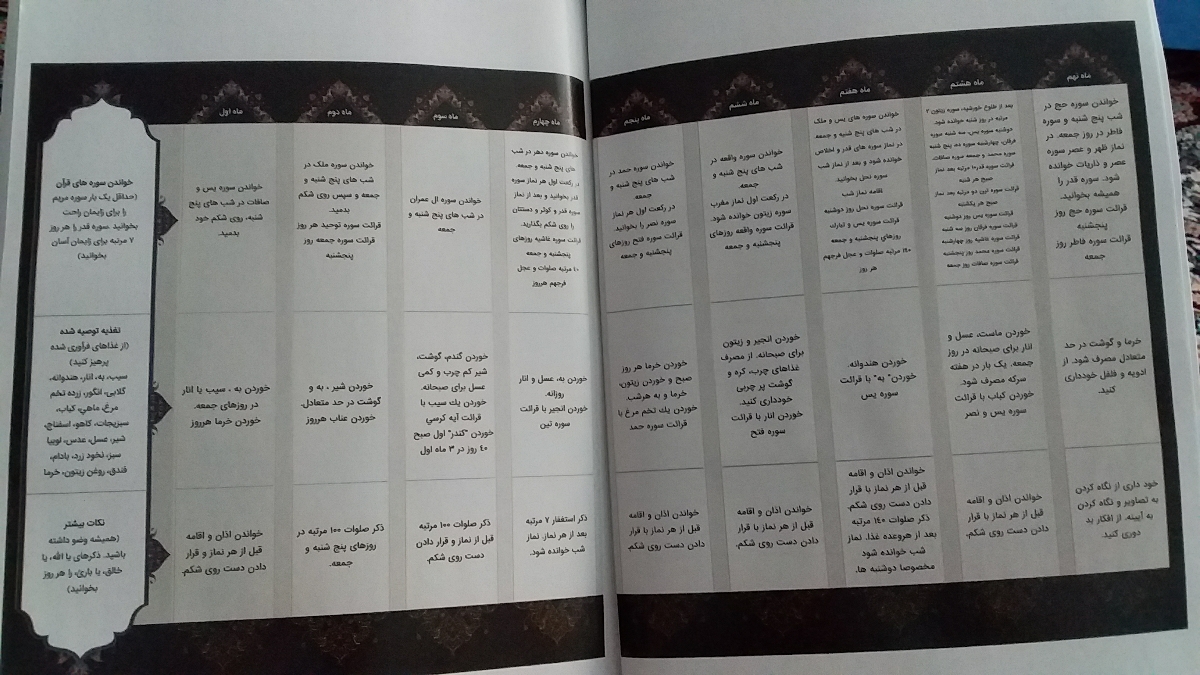 خواندن سوره های قرآن
(حداقل یک بار سوره مریم
را برای زایمان راحت
بخوانید .سوره قدر را هر روز
۷ مرتبه برای زایمان آسان
بخوانید)
تغذیه توصیه شده
(از غذاهای فرآوری شده
پرهیز کنید)
سیب، به، انار، هندوانه،
گلابی، انگور، زرده تخم
مرغ، ماهي، کباب،
سبزیجات، کاهو، اسفناج،
شیر، عسل، عدس، لوبیا
سبز، نخود زرد، بادام،
فندق، روغن زیتون، خرما
نکات بیشتر
(همیشه وضو داشته
باشید. ذکرهای یا الله، یا
خالق، یا بارئ، را هر روز
بخوانید)
ماه اول
خواندن سوره یس و
صافات در شب های پنج
شنبه، روی شکم خود
بدمید.
خوردن به ، سیب با انار
در روزهای جمعه.
خوردن خرما هرروز
خواندن اذان و اقامه
قبل از هر نماز و قرار
دادن دست روی شکم.
ماه دوم
خواندن سوره ملک در
شب های پنج شنبه و
جمعه و سپس روی شکم
بدمید.
قرائت سوره توحید هر روز
قرائت سوره جمعه روز
پنجشنبه
خوردن شیر ، به و
گوشت در حد متعادل.
خوردن عناب هرروز
ذکر صلوات ۱۰۰ مرتبه در
روزهای پنج شنبه و
جمعه.
ماه سوم
خواندن سوره ال عمران
در شب های پنج شنبه و
جمعه
خوردن گندم، گوشت،
شیر کم چرب و کمی
عسل برای صبحانه.
خوردن یك سیب با
قرائت آیه کرسي
خوردن "کندر" اول صبح
٤٠ روز در ۳ ماه اول
ذکر صلوات ۱۰۰ مرتبه
قبل از نماز و قرار دادن
دست روی شکم.
ماه چهارم
خواندن سوره دهر در شب
های پنج شنبه و جمعه.
در رکعت اول هر نماز سوره
قدر بخوانید و بعد از نماز
سوره قدر و کوثر و دستتان
را روی شکم بگذارید.
قرائت سوره غاشیه روزهای
پنجشنبه و جمعه
٤٠ مرتبه صلوات و عجل
فرجهم هرروز
خوردن به، عسل و انار
روزانه.
خوردن انجیر با قرائت
سوره تین
ذکر استغفار ۷ مرتبه
بعد از هر نماز. نماز
شب خوانده شود.
ماه پنجم
خواندن سوره حمد در
شب های پنج شنبه و
جمعه.
در رکعت اول هر نماز
سوره نصر را بخوانید.
قرائت سوره فتح روزهای
پنجشنبه و جمعه
خوردن خرما هر روز
صبح و خوردن زیتون،
خرما و به هرشب.
خوردن یك تخم مرغ با
قرائت سوره حمد
خواندن اذان و اقامه
قبل از هر نماز با قرار
دادن دست روی شکم.
ماه ششم
خواندن سوره واقعه در
شب های پنج شنبه و
جمعه.
در رکعت اول نماز مغرب
سوره زیتون خوانده شود.
قرائت سوره واقعه روزهای
پنجشنبه و جمعه
خوردن انجیر و زیتون
برای صبحانه. از مصرف
غذاهای چرب، کره و
گوشت پر چربی
خودداری کنید.
خوردن انار با قرائت
سوره فتح
خواندن اذان و اقامه
قبل از هر نماز با قرار
دادن دست روی شکم.
ماه هفتم
خواندن سوره های یس و ملک
در شب های پنج شنبه و جمعه.
در نماز سوره های قدر و اخلاص
خوانده شود و بعد از نماز شب
سوره نحل بخوانید.
اقامه نماز شب
قرائت سوره نحل روز دوشنبه
قرائت سوره یس و تبارك
روزهای پنجشنبه و جمعه
١٤٠ مرتبه صلوات و عجل فرجهم
هر روز
خوردن هندوانه.
خوردن" به" با قرائت
سوره یس
خواندن اذان و اقامه
قبل از هر نماز با قرار
دادن دست روی شکم.
ذکر صلوات ١٤٠ مرتبه
بعد از هروعده غذا. نماز
شب خوانده شود
مخصوصا دوشنبه ها.
ماه هشتم
بعد از طلوع خورشید، سوره زیتون ۲
مرتبه در روز شنبه خوانده شود.
دوشنبه سوره یس، سه شنبه سوره
فرقان، چهارشنبه سوره دهر، پنج شنبه
سوره محمد و جمعه سوره صافات.
قرائت سوره قدر۱۰ مرتبه بعد نماز
صبح هر شنبه
قرائت سوره تین دو مرتبه بعد نماز
صبح هر یکشنبه
قرائت سوره یس روز دوشنبه
قرائت سوره فرقان روز سه شنبه
قرائت سوره غاشیه روز چهارشنبه
قرائت سوره محمد روز پنجشنبه
قرائت سوره صافات روز جمعه
خوردن ماست، عسل و
انار برای صبحانه در روز
جمعه. یک بار در هفته
سرکه مصرف شود.
خوردن کباب با قرائت
سوره یس و نصر
خواندن اذان و اقامه
قبل از هر نماز با قرار
دادن دست روی شکم.
ماه نهم
خواندن سوره حج در
شب پنج شنبه و سوره
فاطر در روز جمعه. در
نماز ظهر و عصر سوره
عصر و ذاریات خوانده
شود. سوره قدر را
همیشه بخوانید.
قرائت سوره حج روز
پنجشنبه
قرائت سوره فاطر روز
جمعه
خرما و گوشت در حد
متعادل مصرف شود. از
ادویه و فلفل خودداری
کنید.
خود داری از نگاه کردن
به تصاویر و نگاه کردن
به آیینه. از افکار بد
دوری کنید.